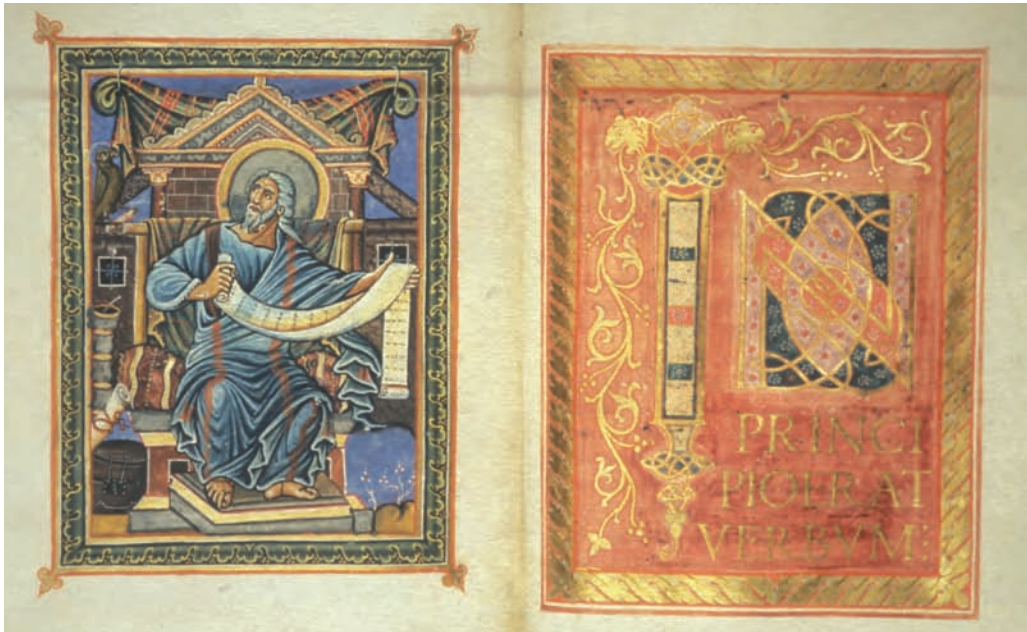 IN
PRINCI
PIOERAT
VERBVM: